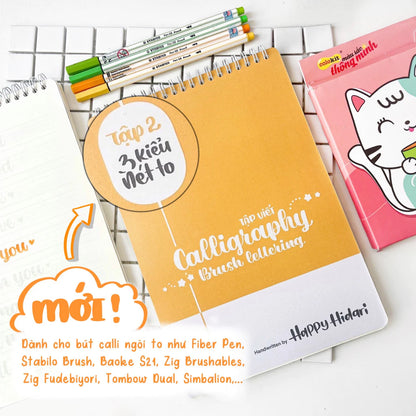 TẬP 2
3 KIỂU
NÉT TO
TẬP VIẾT
Calligraphy
Brush lettering
Handwritten by Happy Hidari
colokit
màu sắc
thông minh
you
mới!
Dành cho bút calli ngòi to như Fiber Pen,
Stabilo Brush, Baoke S21, Zig Brushables,
Zig Fudebiyori, Tombow Dual, Simbalion,...